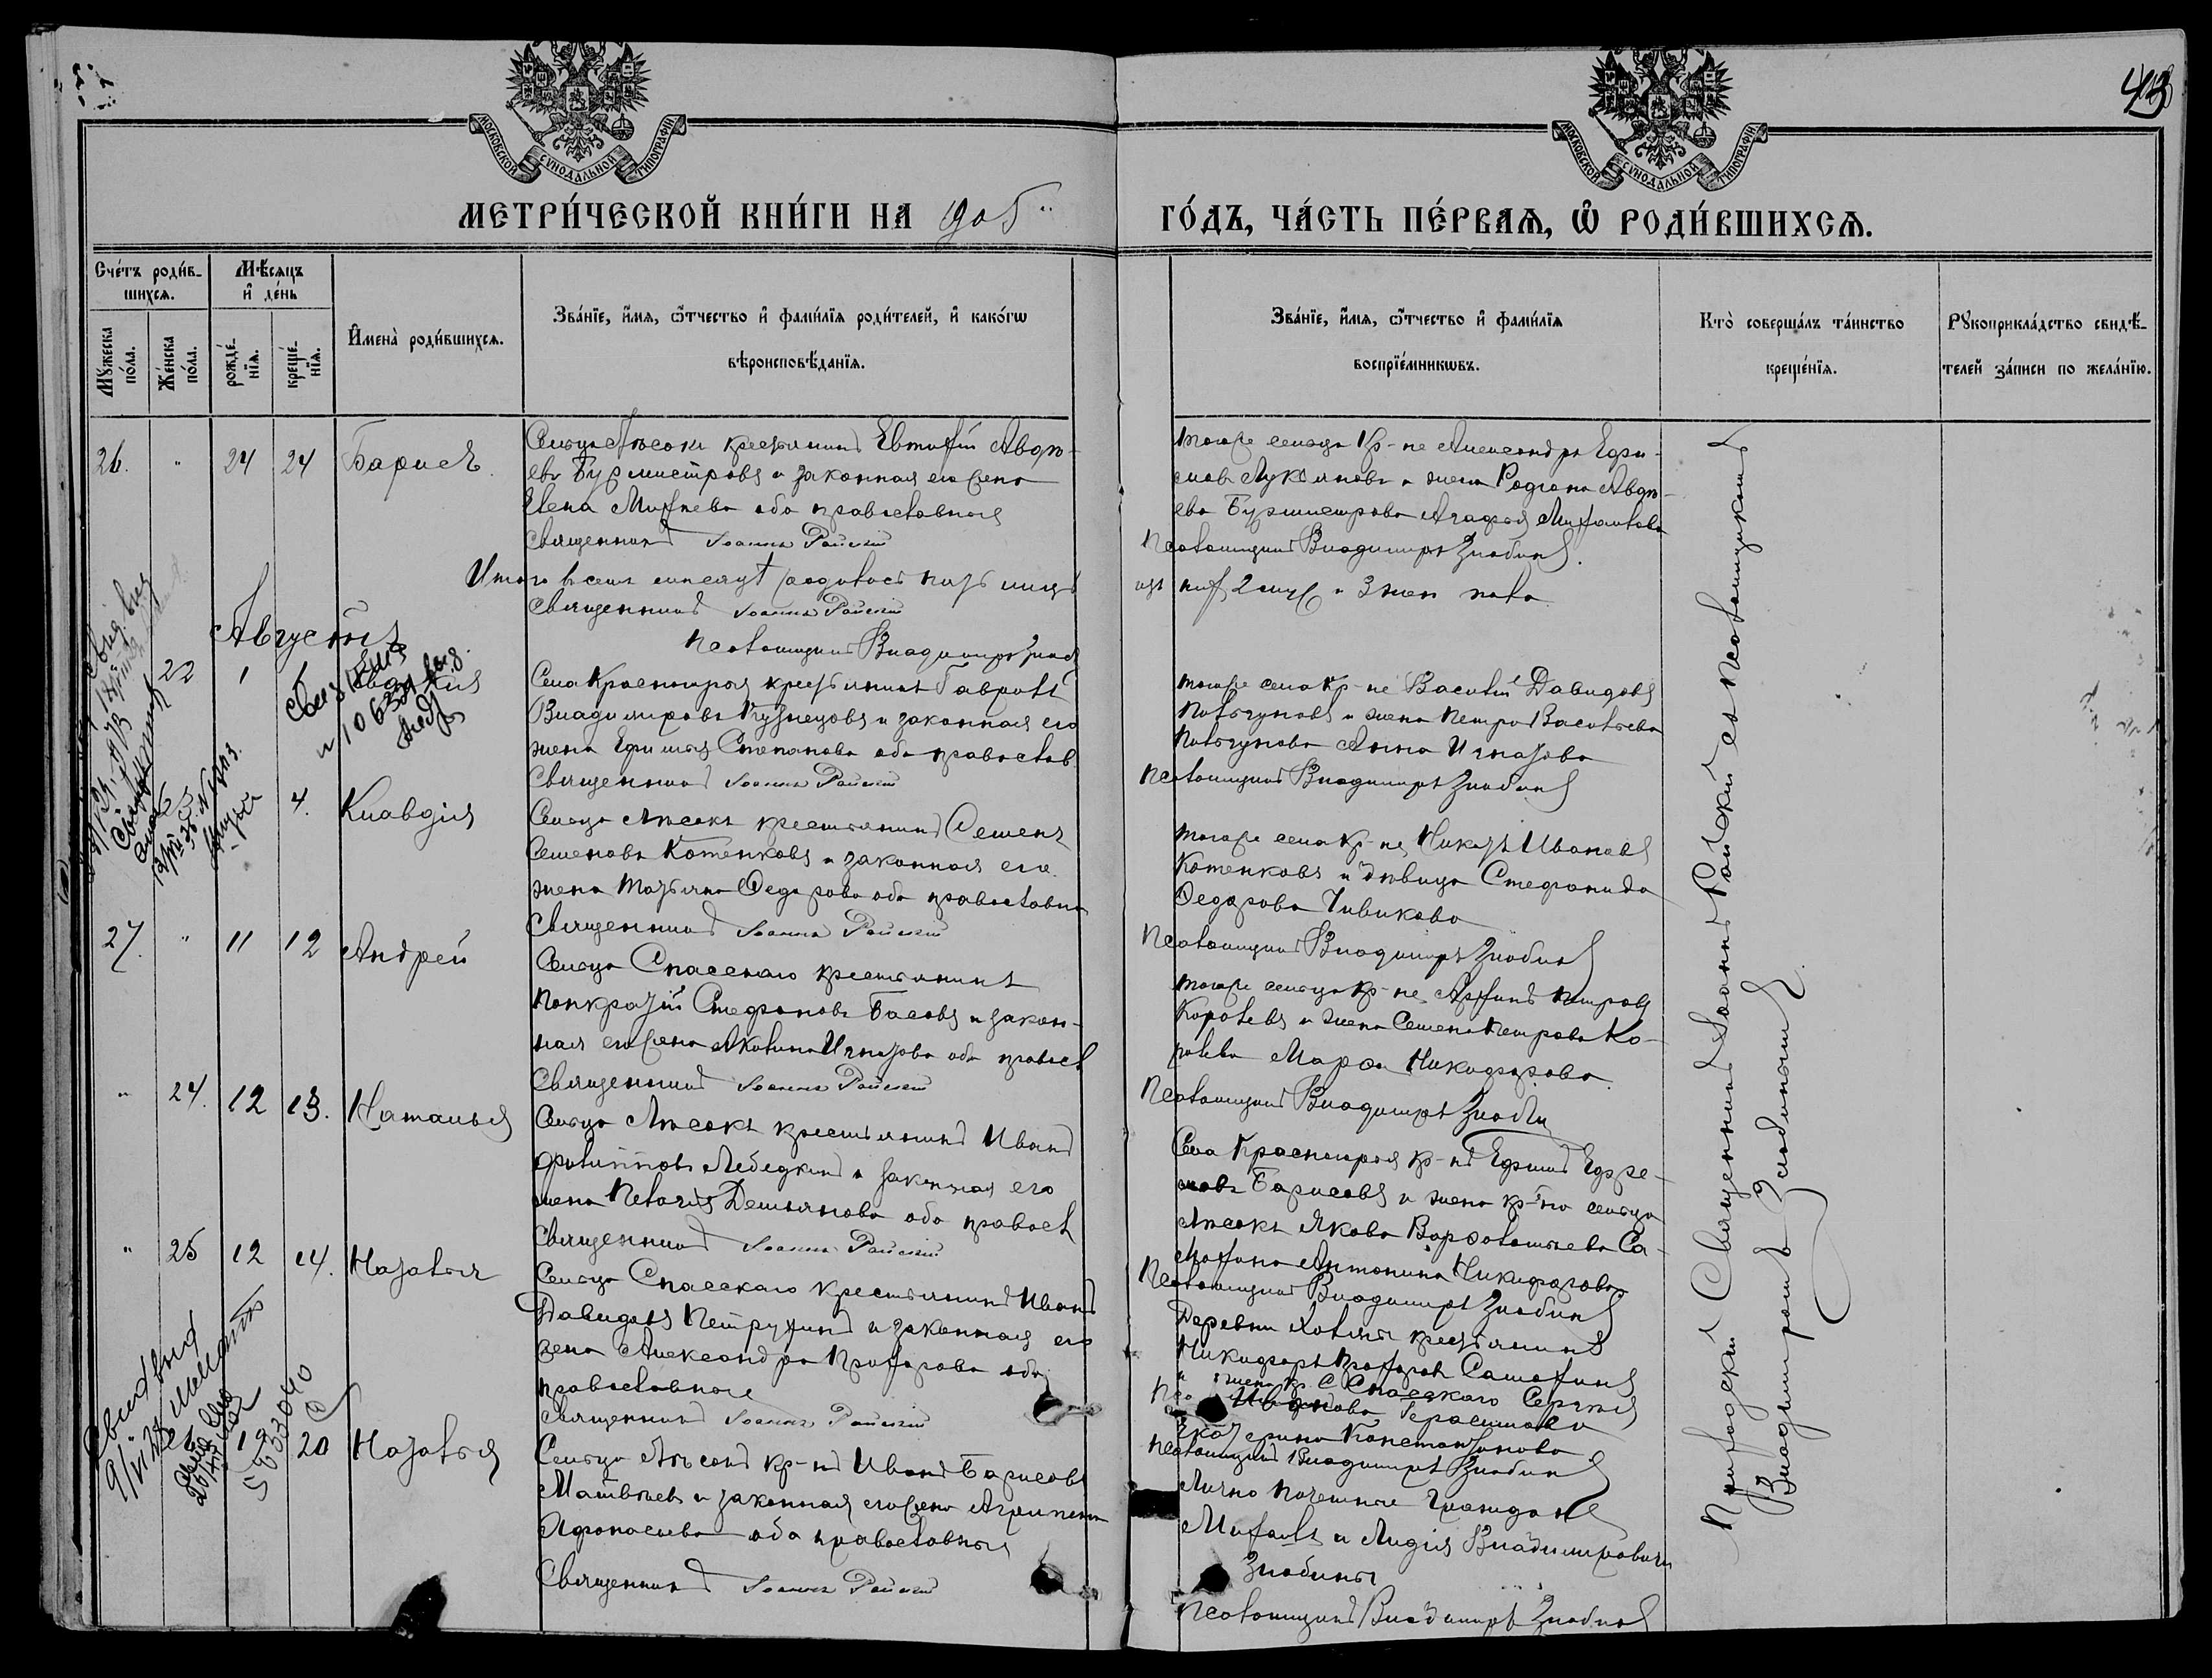 43
МОСКОВСКОЙ СѴНОДАЛЬНОЙ ТИПОГРАФІИ
МОСКОВСКОЙ СѴНОДАЛЬНОЙ ТИПОГРАФІИ
МЕТРИ́ЧЕСКОЙ КНИ́ГИ НА 1905
ГО́ДЪ, ЧА́СТЬ ПЕ́РВАѦ, Ѡ҆ РОДИ́ВШИХСѦ.
Сче́тъ роди́в-
шихсѧ.
Мꙋ́жеска по́ла.
Же́нска по́ла.
Мѣ́сѧцъ
и҆ де́нь
рожде́-
нїѧ.
креще́-
нїѧ.
И҆мена̀ роди́вшихсѧ.
Зва́нїе, и҆́мѧ, ѻ҆́тчество и҆ фами́лїѧ роди́телей, и҆ како́гѡ
вѣроисповѣ́данїѧ.
Зва́нїе, и҆́мѧ, ѻ҆́тчество и҆ фами́лїѧ
воспрїе́мникѡвъ.
Кто̀ соверша́лъ та́инство
креще́нїѧ.
Рꙋкоприкла́дство свидѣ́-
телей за́писи по жела́нїю.
26. " 24 24 Борисъ
Сельца Лѣсокъ крестьянинъ Евтихій Авдѣ-
евъ Бурмистровъ и законная его жена
Елена Михѣева оба православные
Священникъ Іоаннъ Райскій
тогоже сельца кр-не Александръ Ефи-
мовъ Лукьяновъ и жена Родіона Авдѣ-
ева Бурмистрова Агафья Михайлова
Псаломщикъ Владиміръ Злобинъ
Итого въ семъ родилось пять лицъ
изъ нихъ 2 муж и 3 жен пола
Священникъ Іоаннъ Райскій
Псаломщикъ Владиміръ Злоб
Августъ
22 1
Села Красногорья крестьянинъ Гавріилъ
Владиміровъ Кузнецовъ и законная его
жена Ефимья Степанова оба православ.
Священникъ Іоаннъ Райскій
тогоже села кр-не Василій Давидовъ
и жена Петра Васильева
Анна Игнатова
Псаломщикъ Владиміръ Злобинъ
4. Клавдія
Сельца Лѣсокъ крестьянинъ Семенъ
Семеновъ Котенковъ и законная его
жена Татьяна Ѳедорова оба православны
Священникъ Іоаннъ Райскій
тогоже села кр-не Иванъ
Котенковъ и дѣвица Стефанида
Ѳедорова Чивикова
Псаломщикъ Владиміръ Злобинъ
27. " 11 12 Андрей
Сельца Спасскаго крестьянинъ
Панкратій Стефановъ Басовъ и закон-
ная его жена Акилина Игнатова оба правосл
Священникъ Іоаннъ Райскій
тогоже сельца кр-не Петровъ
Королевъ и жена Семена Петрова Ко-
ролева Марѳа Никифорова
Псаломщикъ Владиміръ Злобин
" 24. 12 13. Наталья
Сельца Лѣсокъ крестьянинъ Иванъ
Филипповъ Лебедкинъ и законная его
жена Пелагія Демьянова оба правосл
Священникъ Іоаннъ Райскій
Села Красногорья кр-нъ Ефимъ Ефре-
мовъ Борисовъ и жена кр-на сельца
Лѣсокъ Якова Варѳоломѣева Са-
Антонина Никифорова
Псаломщикъ Владиміръ Злобинъ
" 25 12 14. Наталья
Сельца Спасскаго крестьянинъ Иванъ
Давидовъ Петрухинъ и законная его
жена Александра Прохорова оба
православные
Священникъ Іоаннъ Райскій
Деревни крестьянинъ
Никифоръ Прохоровъ Самохинъ
и жена кр. с Спасскаго Сергія
Герасимова
Екатерина Константинова
Псаломщикъ Владиміръ Злобинъ
19 20 Наталья
Сельца Лѣсокъ кр-нъ Иванъ Борисовъ
Матвѣевъ и законная его жена Агрипина
Афонасьева оба православны
Священникъ Іоаннъ Райскій
Лично почетные граждане
Михаилъ и Лидія Владиміровичи
Злобины
Псаломщикъ Владиміръ Злобинъ
Приходскій Священникъ Іоаннъ Райскій съ псаломщикомъ
Владиміромъ Злобинымъ